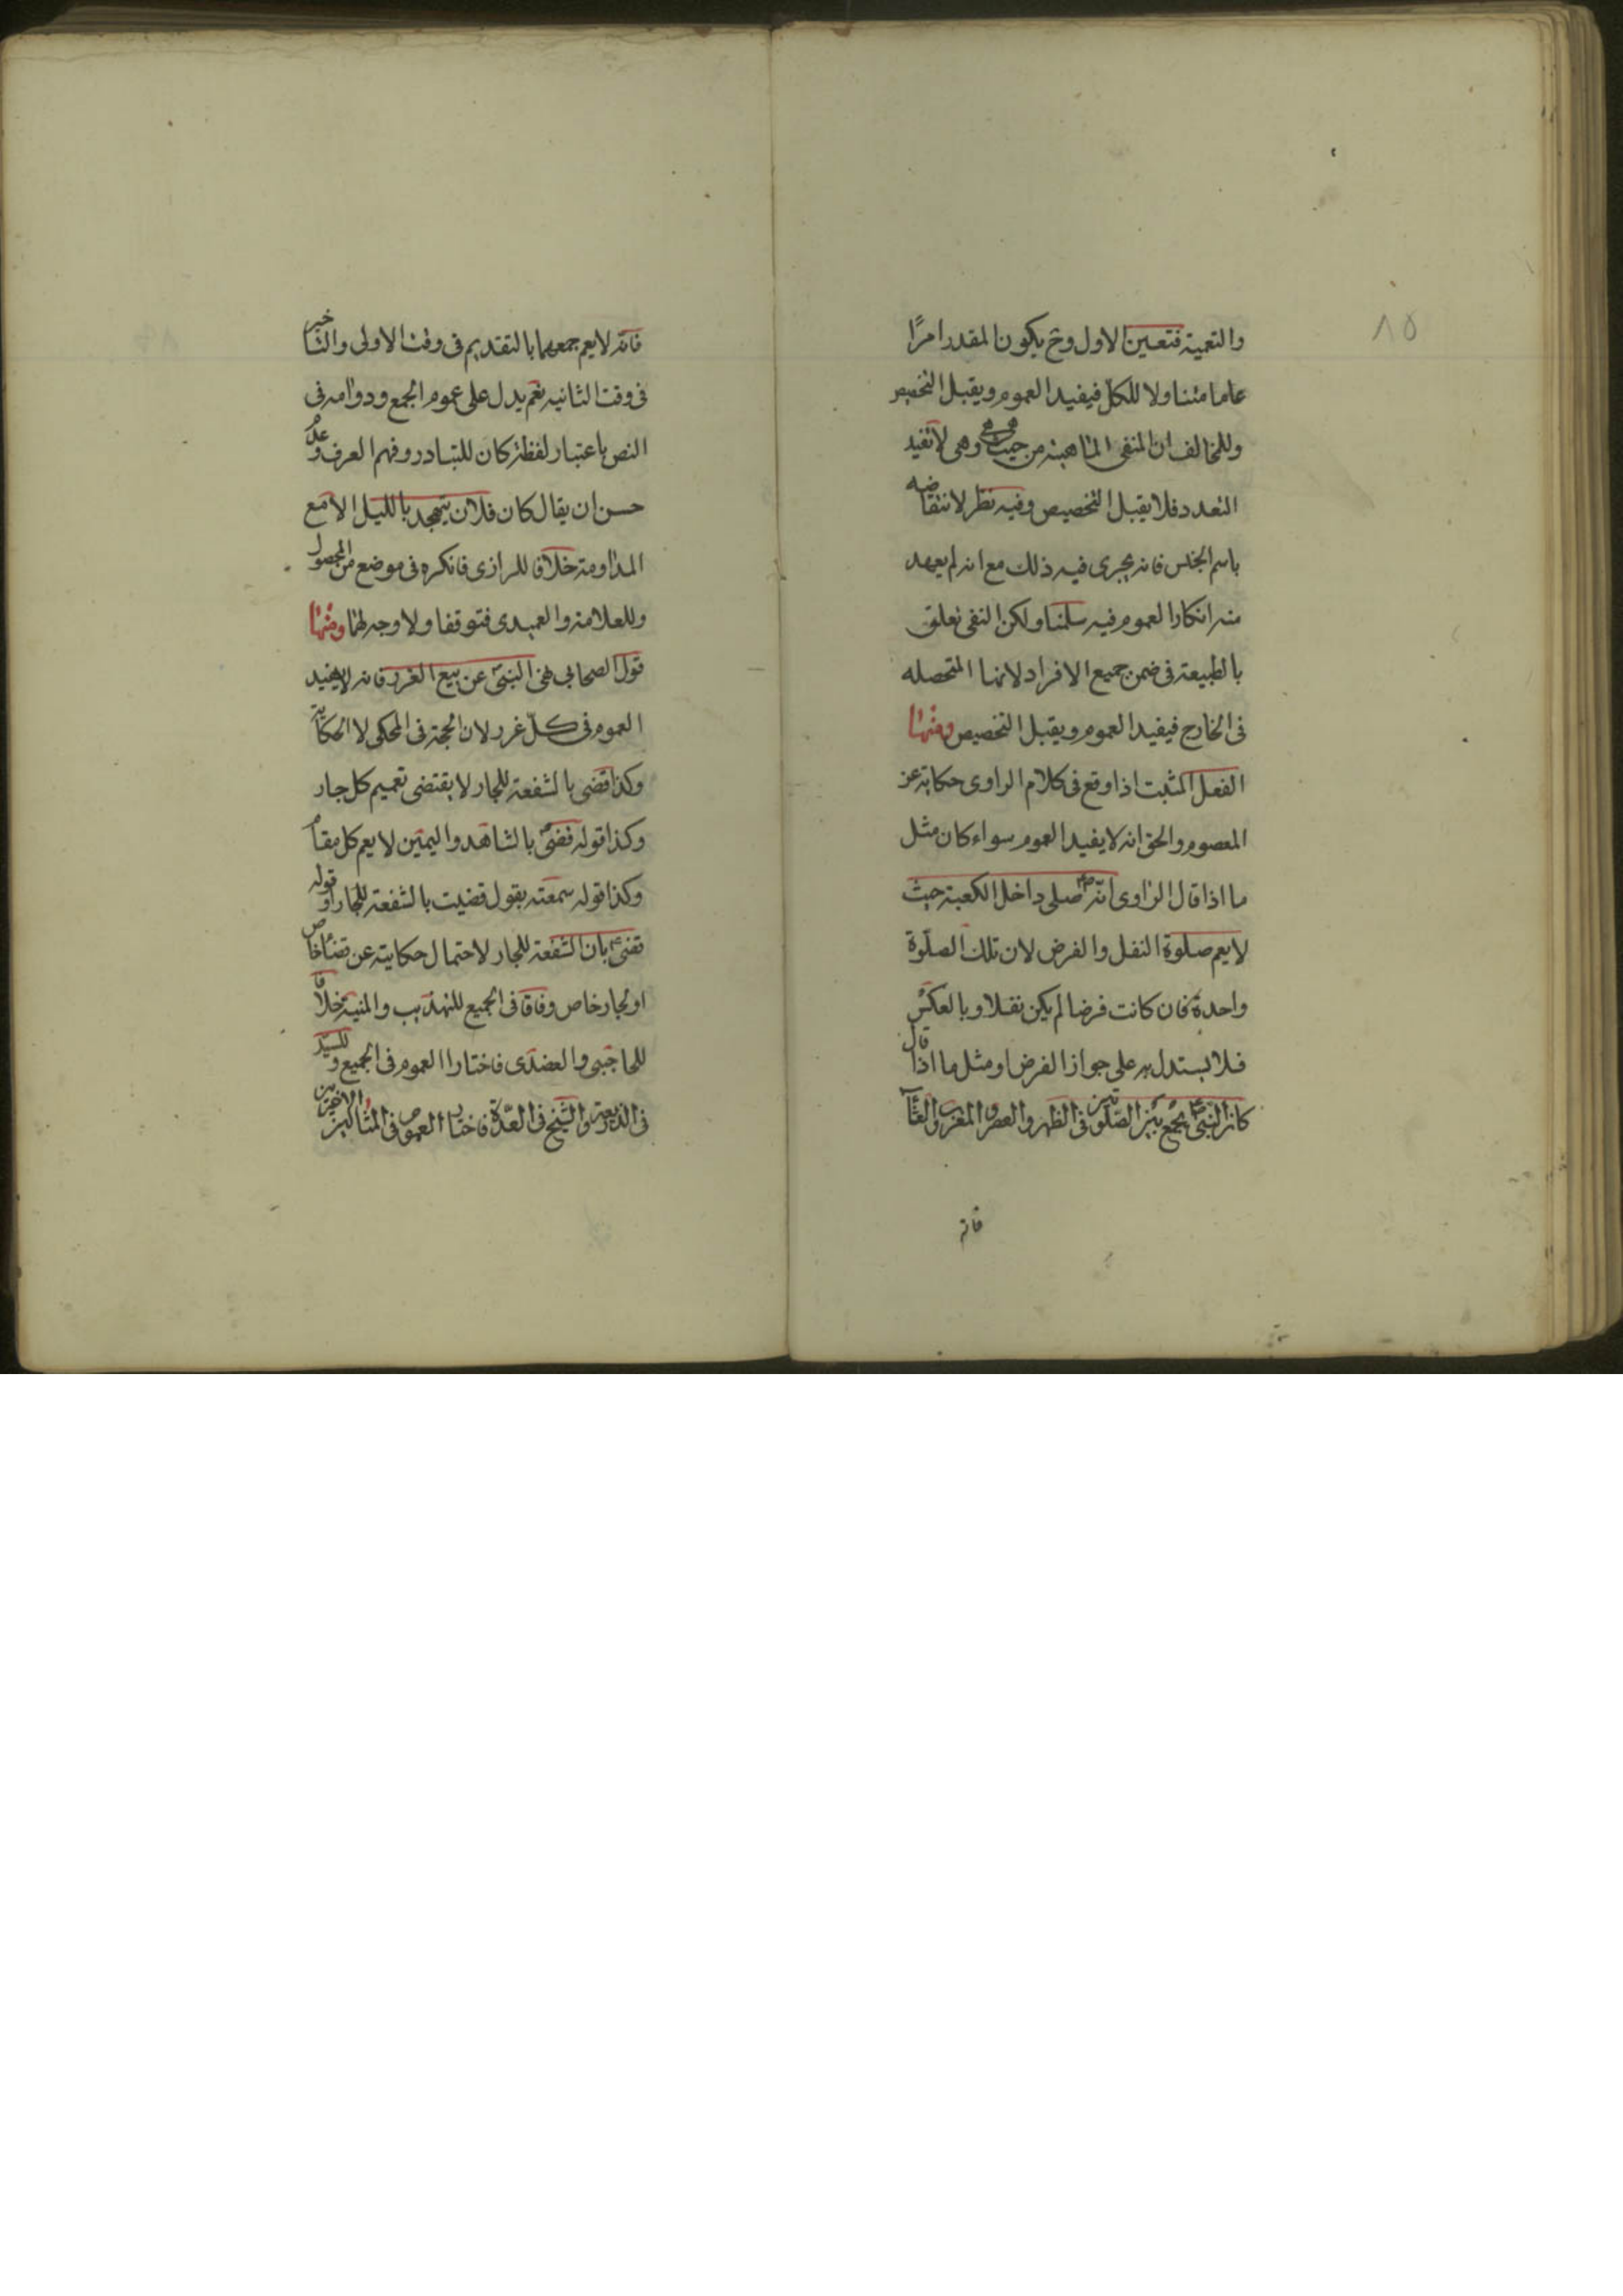 ٨٥
والتعمية فتعين الاول وح يكون المقدر امرًا
عاما متناولا للكل فيفيد العموم ويقبل التخصيص
وللمخالف ان المنفى الماهية من حيث هى هى وهى لا تفيد
التعدد فلا يقبل التخصيص وفيه نظر لانتقاضه
باسم الجنس فانه يجرى فيه ذلك مع انه لم يعهد
منه انكار العموم فيه سلمنا ولكن النفى تعلق
بالطبيعة فى ضمن جميع الافراد لانها المتحصله
فى الخارج فيفيد العموم ويقبل التخصيص ومنها
الفعل المثبت اذا وقع فى كلام الراوى حكاية عن
المعصوم والحق انه لا يفيد العموم سواء كان مثل
ما اذا قال الراوى انّه ص صلى داخل الكعبة حيث
لا يعم صلوة النفل والفرض لان تلك الصلوة
واحدة فان كانت فرضا لم يكن نفلا وبالعكس
فلا يستدل به على جواز الفرض او مثل ما اذا قال
كان النبى ص يجمع بين الصلوتين فى الظهر والعصر والمغرب والعشآ
فانه
فانّه لا يعم جمعهما بالتقديم فى وقت الاولى والتاخير
فى وقت الثانيه نعم يدل على عموم الجمع ودوامه فى
النص باعتبار لفظة كان للتبادر وفهم العرف وعدم
حسن ان يقال كان فلان يتهجد بالليل الا مع
المداومة خلافا للرازى فانكره فى موضع من المحصول
وللعلامة والعميدى فتوقفا ولا وجه لهما ومنها
قول الصحابي نهى النبىّ عن بيع الغرر فانه لا يفيد
العموم فى كلّ غرر لان الحجة فى المحكى لا الحكاية
وكذا قضى بالشفعة للجار لا يقتضى تعميم كل جار
وكذا قوله قضى بالشاهد واليمين لا يعم كل مقام
وكذا قوله سمعته يقول قضيت بالشفعة للجار او قوله
قضى بان الشفعة للجار لاحتمال حكايته عن قضاء خاص
او لجار خاص وفاقا فى الجميع للتهذيب والمنية خلافا
للحاجبى والعضدى فاختارا العموم فى الجميع وللسيد
فى الذريعة والشيخ فى العدّة فاختارا العموم فى المثالين الاخيرين